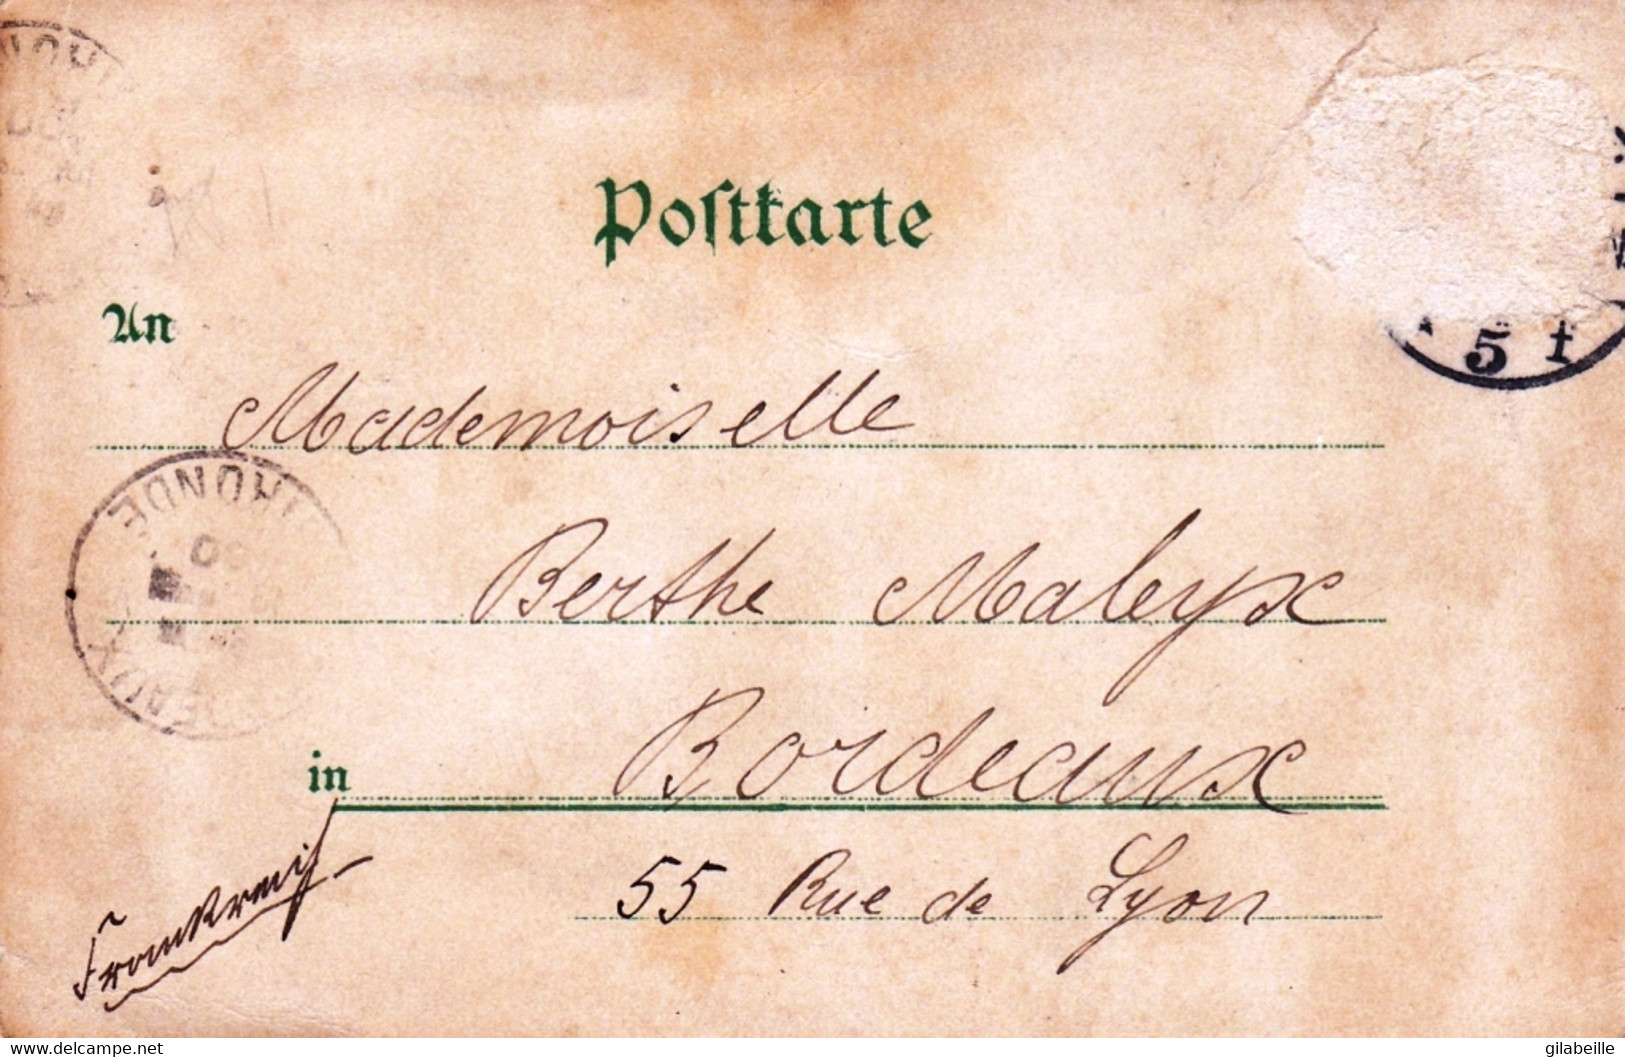 Postkarte
An
Mademoiselle
Berthe Maleyx
in Bordeaux
55 Rue de Lyon
Frankreich
GIRONDE
5 f
www.delcampe.net
gilabeille